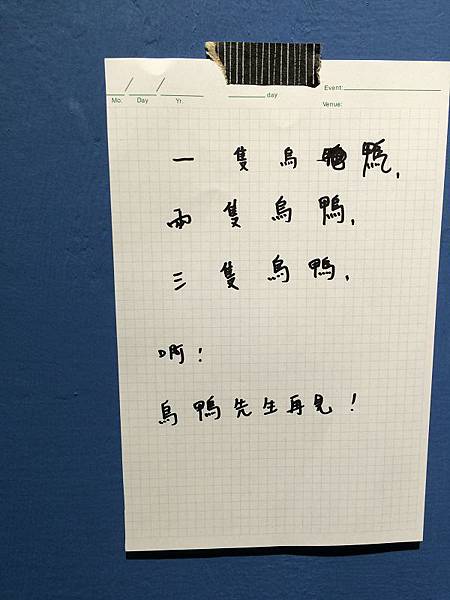 Mo. / Day / Yr. day Event:
Venue:
一隻烏鴨,
兩隻烏鴨,
三隻烏鴨,
啊!
烏鴨先生再見!